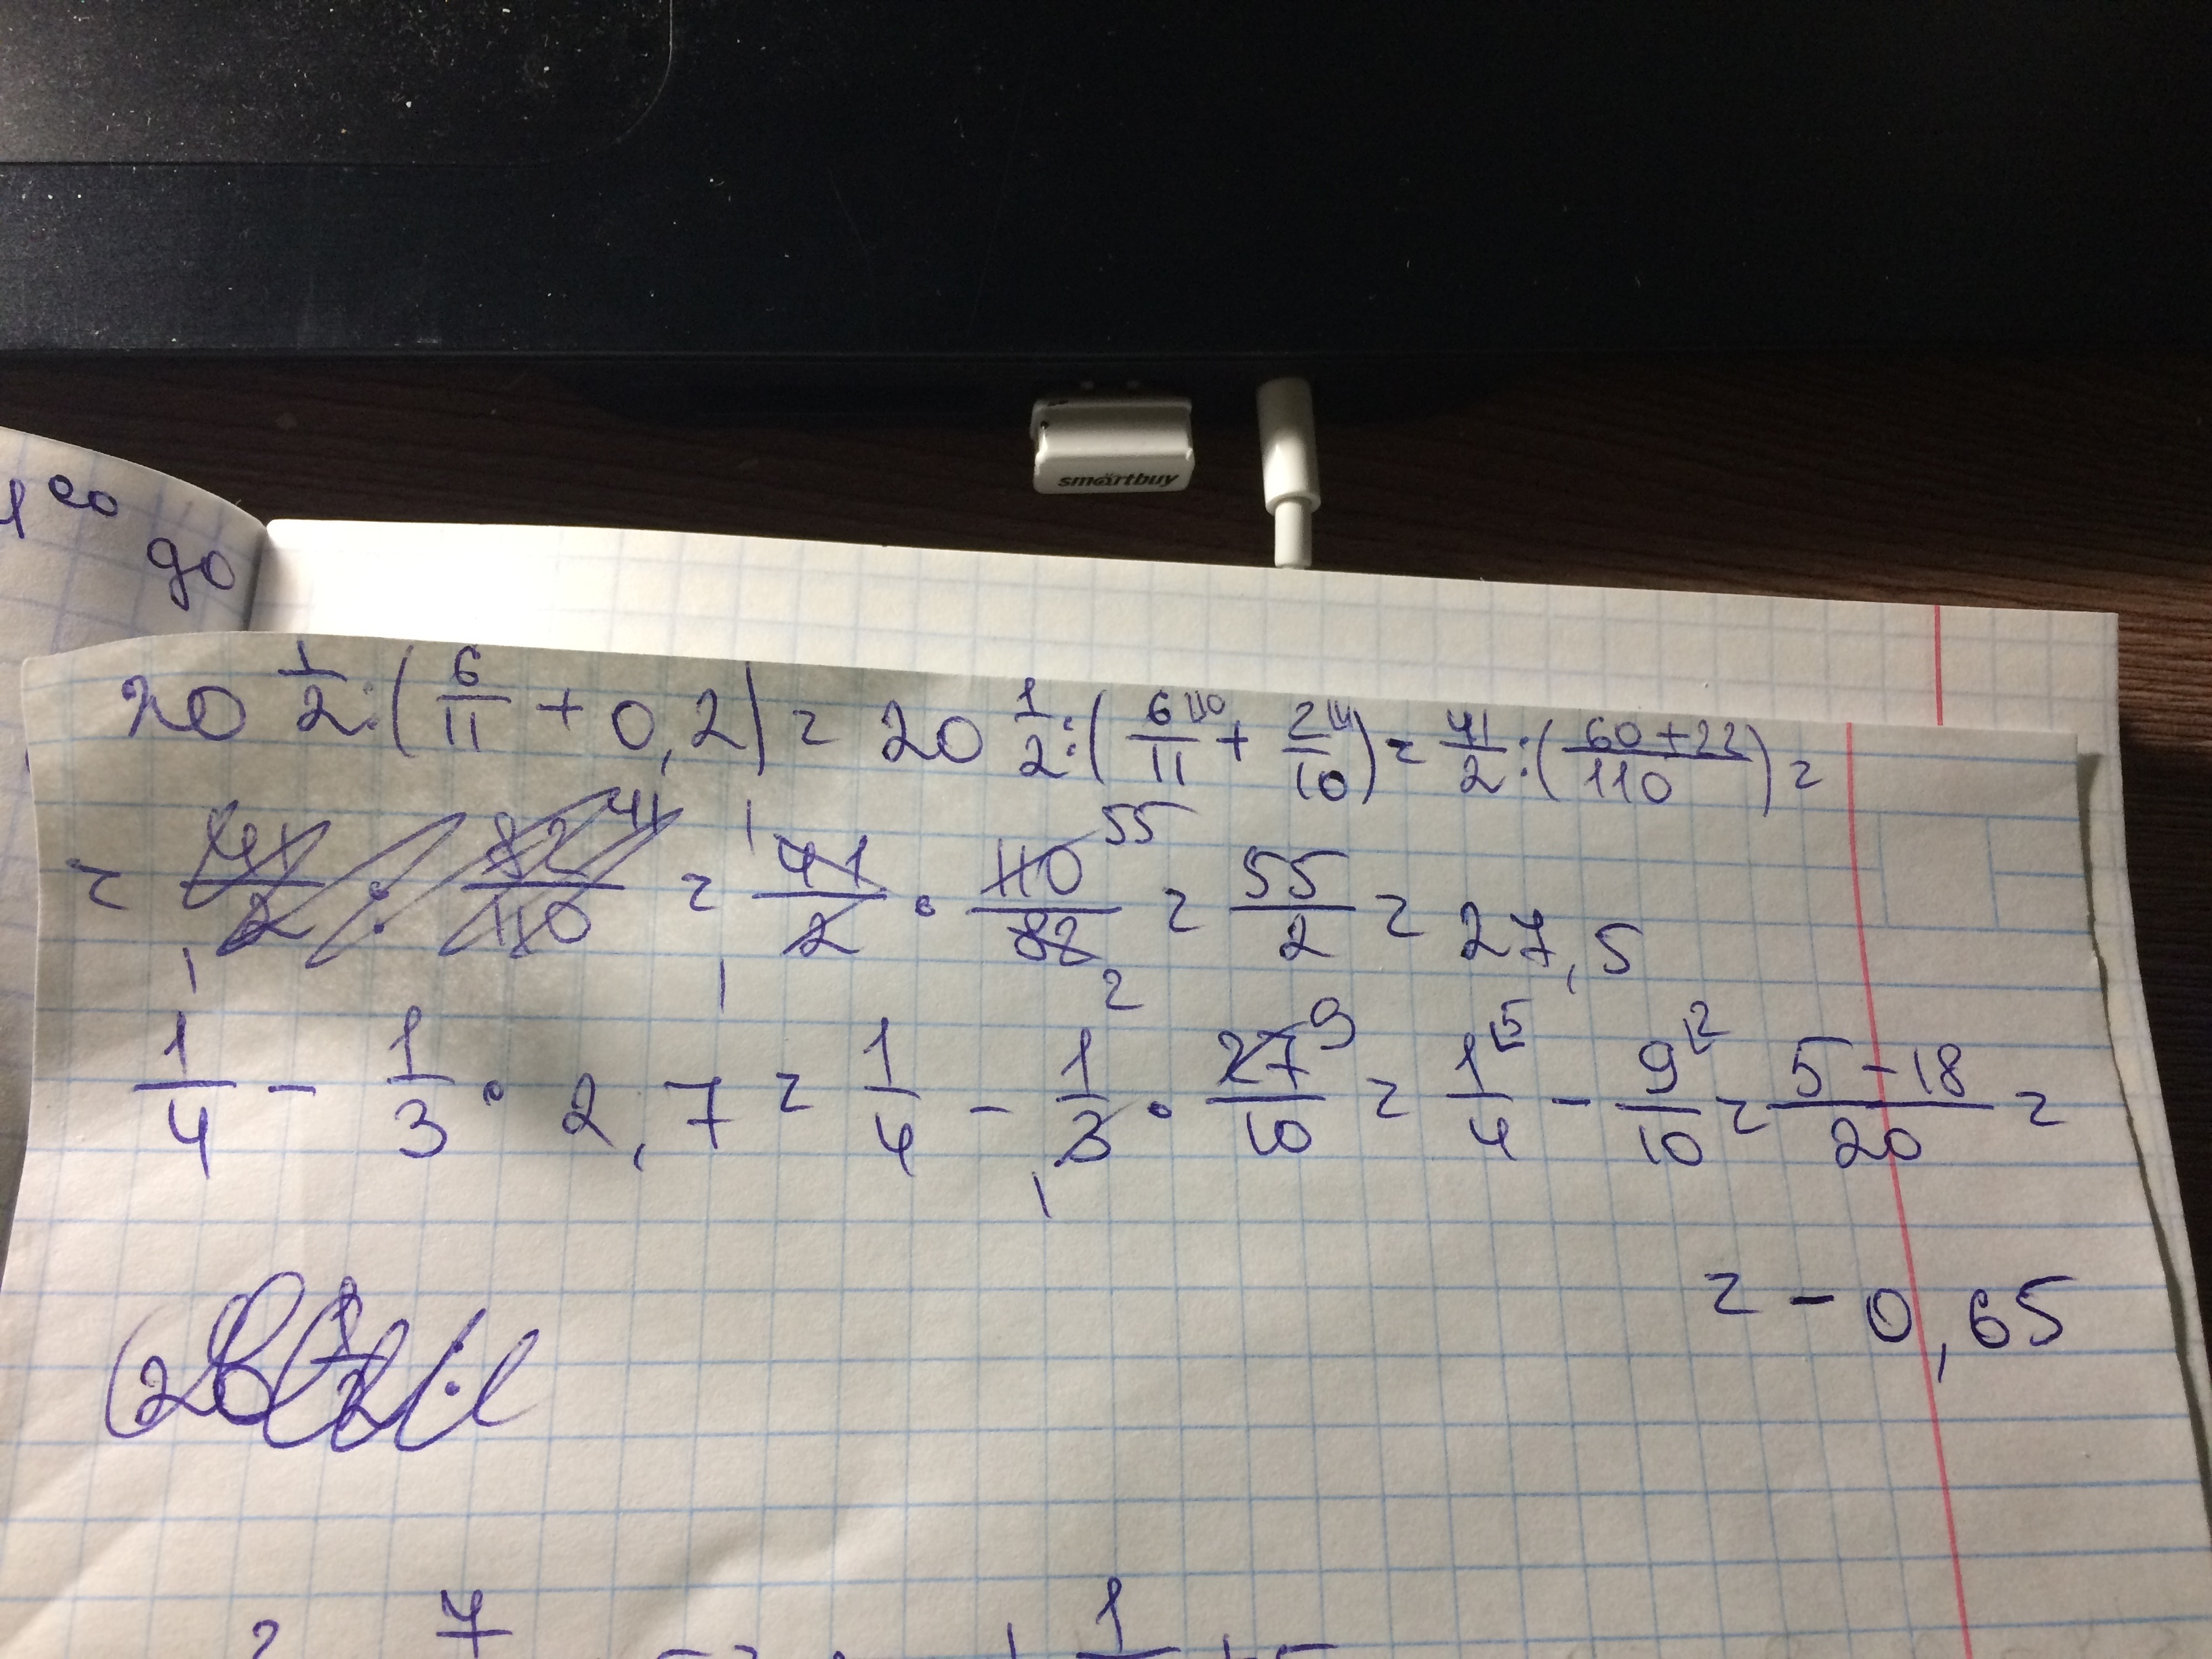 smartbuy
1 eo
go
20 1/2 : (6/11 + 0,2) = 20 1/2 : (6⌊10/11 + 2⌊11/10) = 41/2 : (60+22/110) =
= 41/2 : 82/110 = 41/2 · 110/82 = 55/2 = 27,5
1/4 - 1/3 · 2,7 = 1/4 - 1/3 · 27/10 = 1⌊5/4 - 9⌊2/10 = 5-18/20 =
= - 0,65
(20 1/2 :